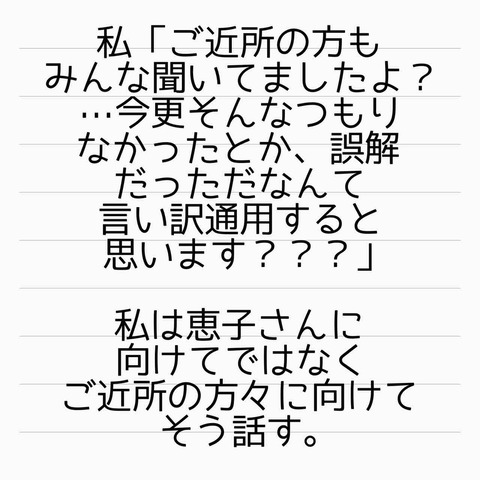 私「ご近所の方も
みんな聞いてましたよ？
…今更そんなつもり
なかったとか、誤解
だっただなんて
言い訳通用すると
思います？？？」
私は恵子さんに
向けてではなく
ご近所の方々に向けて
そう話す。